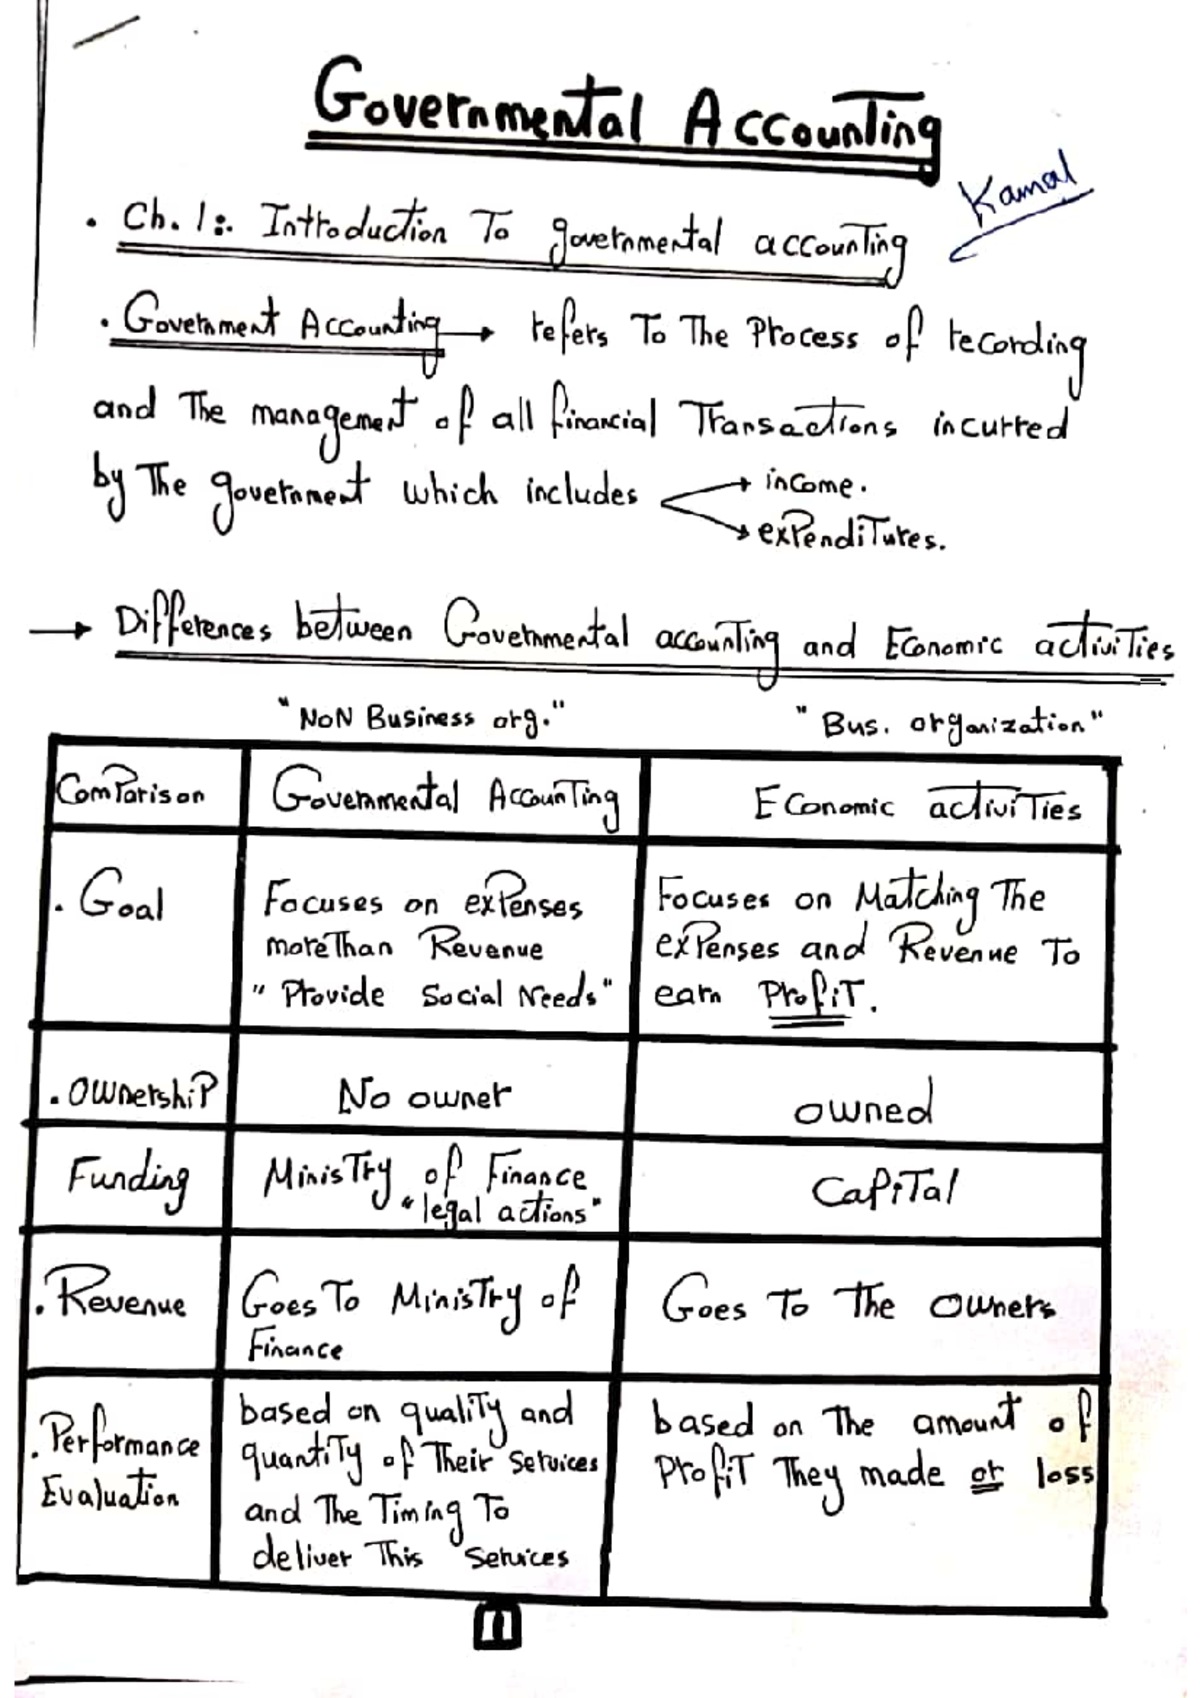 Governmental Accounting
Kamal
• Ch. 1:. Introduction To governmental accounting
• Government Accounting → refers To The Process of recording
and The management of all financial Transactions incurred
by The government which includes → income.
→ expenditures.
→ Differences between Governmental accounting and Economic activities
"NoN Business org." "Bus. organization"
Comparison Governmental Accounting Economic activities
• Goal
Focuses on expenses
more Than Revenue
" Provide Social Needs"
Focuses on Matching The
expenses and Revenue To
earn Profit.
• Ownership No owner owned
Funding
Ministry of Finance
"legal actions"
Capital
• Revenue
Goes To Ministry of
Finance
Goes To The owners
• Performance
Evaluation
based on quality and
quantity of Their services
and The Timing To
deliver This services
based on The amount of
Profit They made or loss
1